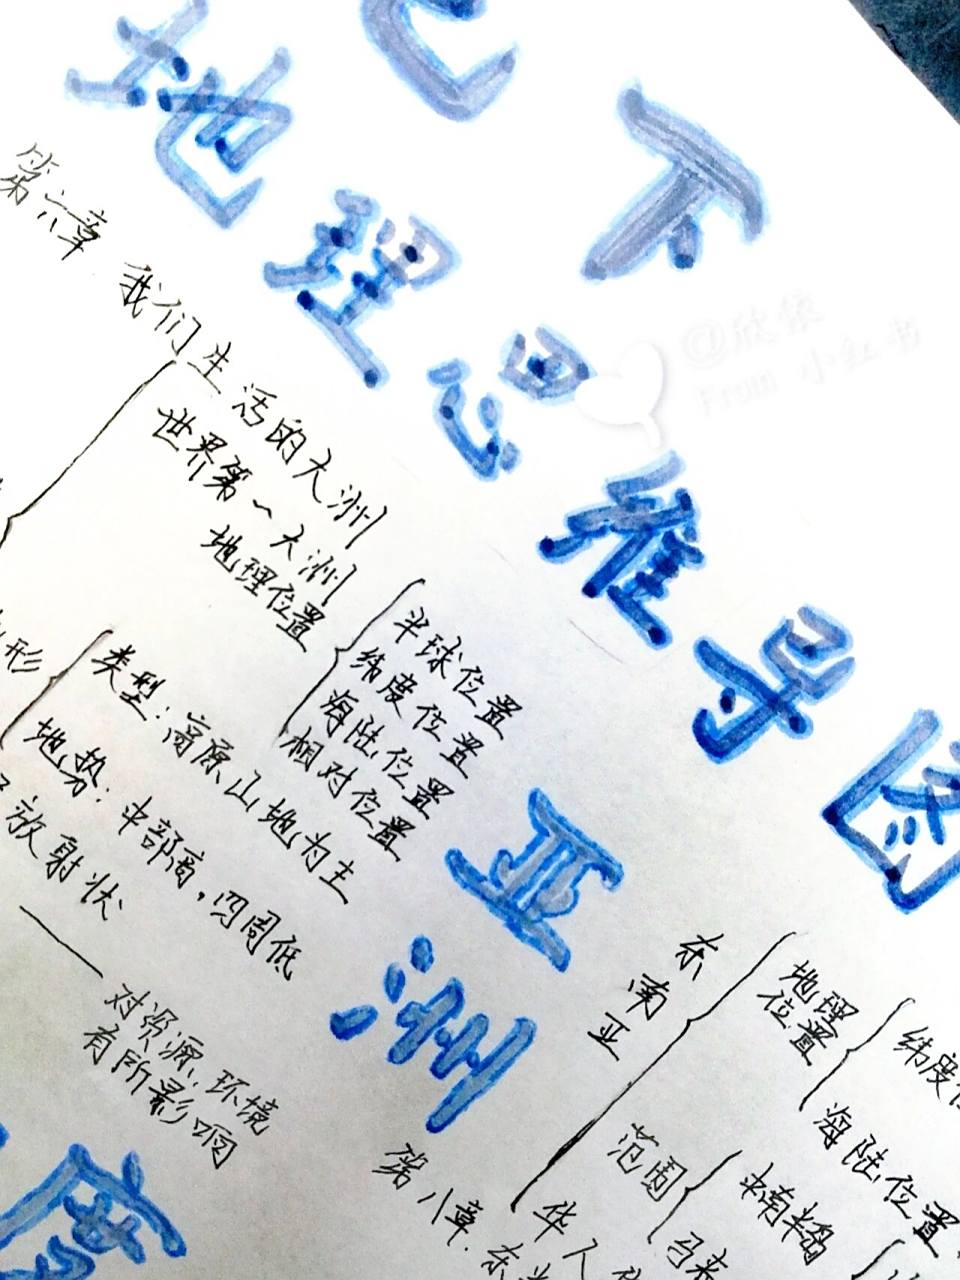 七下
地理思维导图
@欣依
From 小红书
第六章 我们生活的大洲
亚洲
世界第一大洲
地理位置
半球位置
纬度位置
海陆位置
相对位置
形
类型：高原山地为主
地势：中部高，四周低
放射状
对资源，环境
有所影响
第八章 东
东南亚
地理
位置
纬度
海陆位置
范围
中南半岛
马来
华人